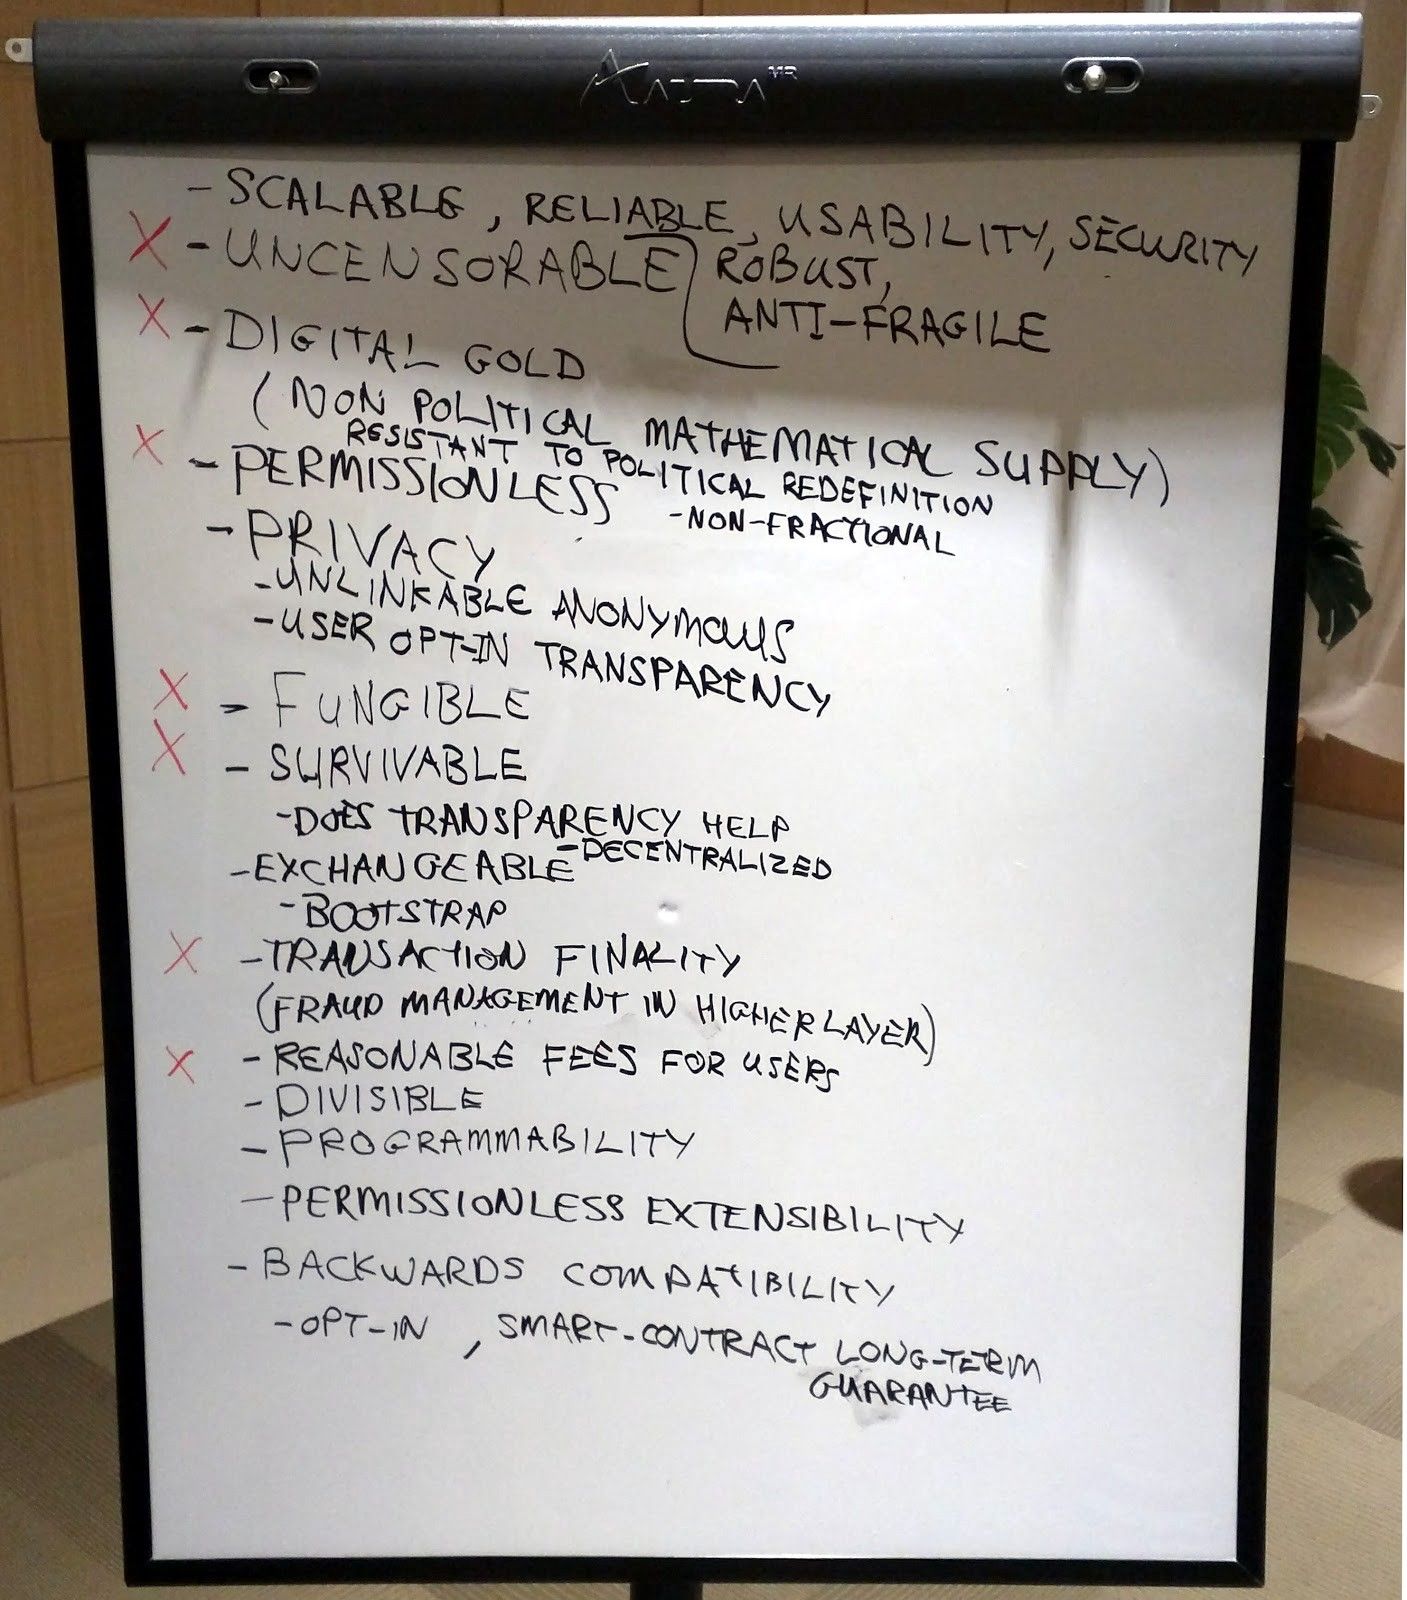 - SCALABLE, RELIABLE, USABILITY, SECURITY
X - UNCENSORABLE ROBUST,
ANTI-FRAGILE
X - DIGITAL GOLD
(NON POLITICAL MATHEMATICAL SUPPLY)
RESISTANT TO POLITICAL REDEFINITION
- NON-FRACTIONAL
X - PERMISSIONLESS
- PRIVACY
- UNLINKABLE ANONYMOUS
- USER OPT-IN TRANSPARENCY
X - FUNGIBLE
X - SURVIVABLE
- DOES TRANSPARENCY HELP
- DECENTRALIZED
- EXCHANGEABLE
- BOOTSTRAP
X - TRANSACTION FINALITY
(FRAUD MANAGEMENT IN HIGHER LAYER)
X - REASONABLE FEES FOR USERS
- DIVISIBLE
- PROGRAMMABILITY
- PERMISSIONLESS EXTENSIBILITY
- BACKWARDS COMPATIBILITY
- OPT-IN, SMART-CONTRACT LONG-TERM
GUARANTEE